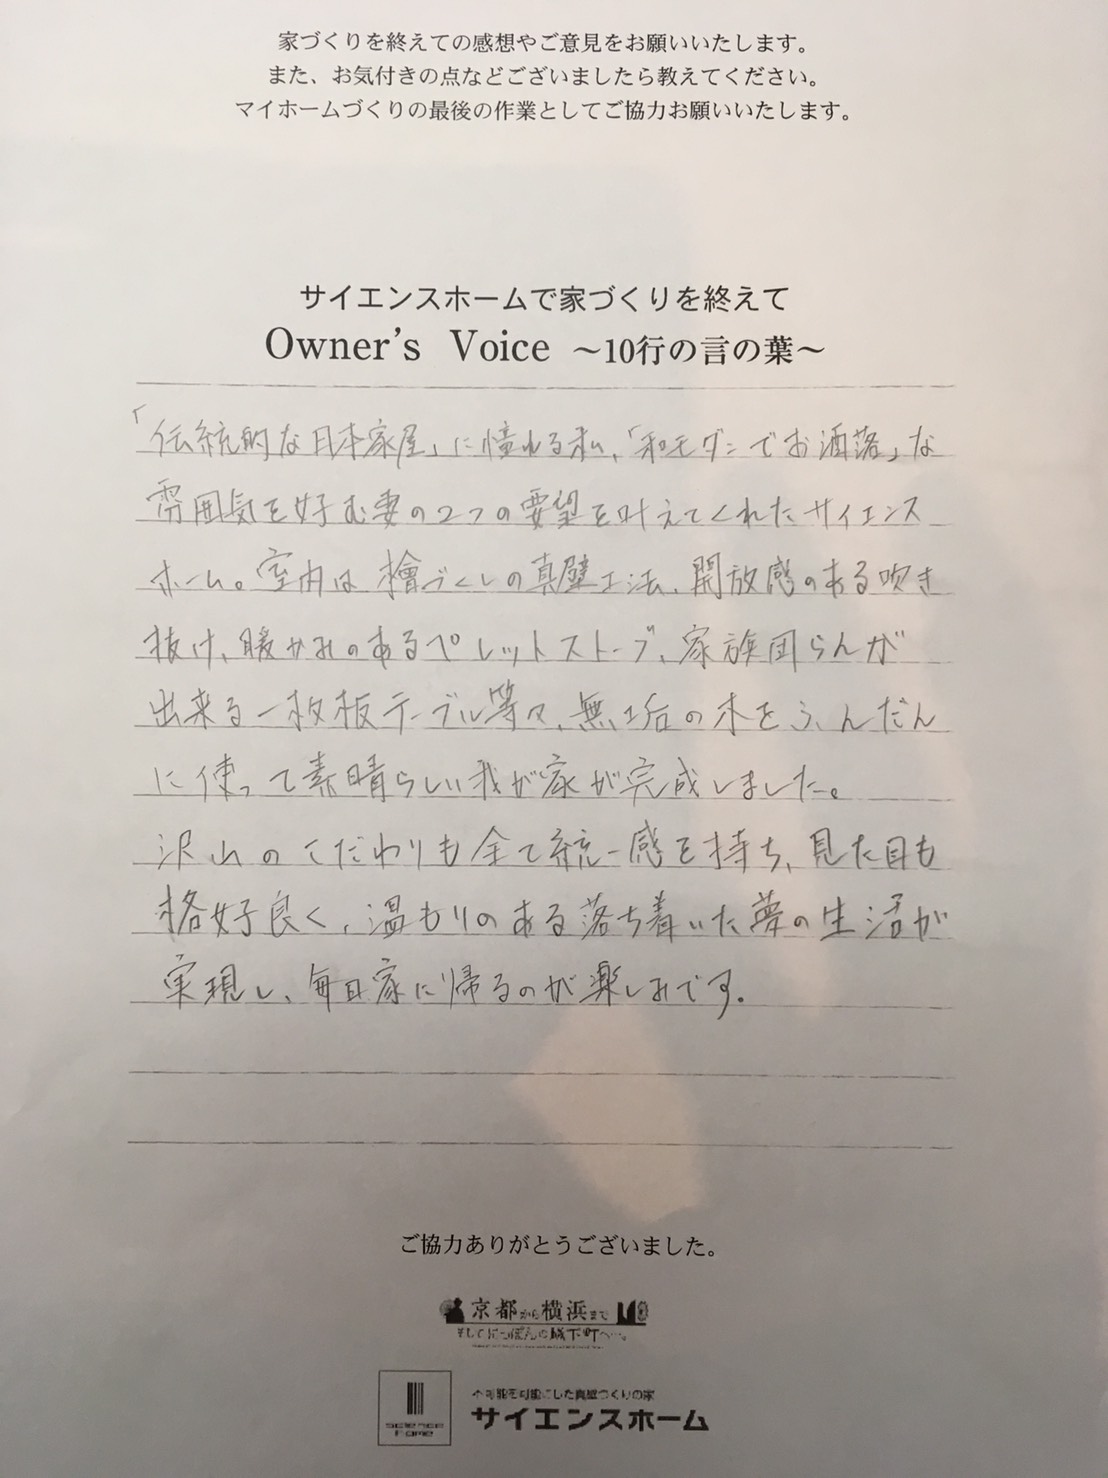 家づくりを終えての感想やご意見をお願いいたします。
また、お気付きの点などございましたら教えてください。
マイホームづくりの最後の作業としてご協力お願いいたします。
サイエンスホームで家づくりを終えて
Owner's Voice ～10行の言の葉～
「伝統的な日本家屋」に憧れる私、「和モダンでお洒落」な
雰囲気を好む妻の2つの要望を叶えてくれたサイエンス
ホーム。室内は檜づくしの真壁工法、開放感のある吹き
抜け、暖かみのあるペレットストーブ、家族団らんが
出来る一枚板テーブル等々、無垢の木をふんだん
に使って素晴らしい我が家が完成しました。
沢山のこだわりも全て統一感を持ち、見た目も
格好良く、温もりのある落ち着いた夢の生活が
実現し、毎日家に帰るのが楽しみです。
ご協力ありがとうございました。
京都から横浜まで
そしてにっぽんの城下町へ…。
science home
不可能を可能にした真壁づくりの家
サイエンスホーム